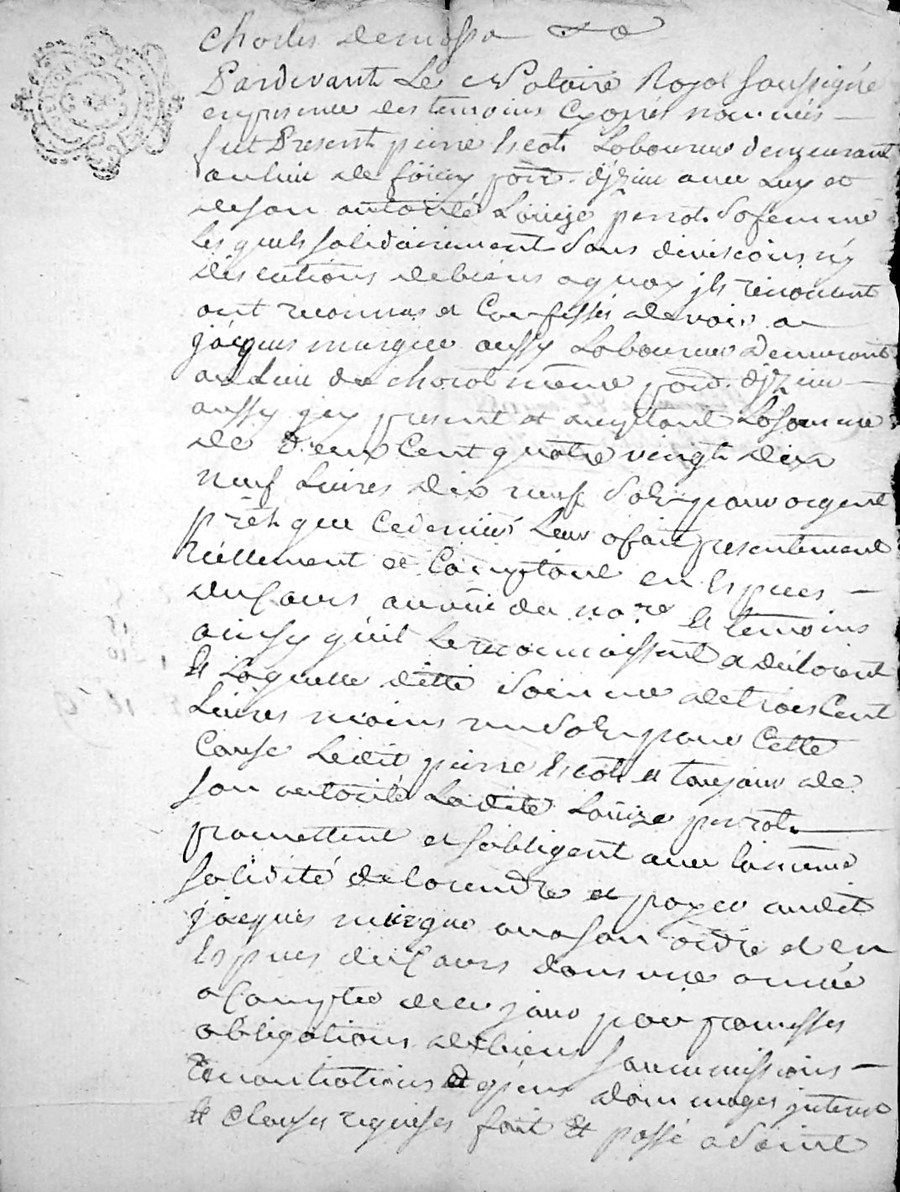 Pardevant Le Notaire Royal Soussigné
en presence des temoins cy apres nommés
fut Present pierre Escot Laboureur demeurant
au lieu de
de son autorité Louize perrot Sa femme
Les quels solidairement Sans division ny
discutions de biens a quoy ils renoncent
ont reconnus et Confessés devoir a
jacques mergue aussy Laboureur Demeurant
au Lieu de même
aussy icy present et acceptant La Somme
de Deux Cent quatre vingt dix
neuf Livres dix neuf Sols pour argent
prêt que ce dernier Leur a fait presentement
réellement et Comptant en Especes
du Cours au vüe du nore et temoins
ainsy qu'il Le reconnaissent et declarent
Et Laquelle ditte Somme de trois Cent
Livres moins un Sol pour Cette
Cause Ledit pierre Escot et toujours de
son autorité Laditte Louize perrot
promettent et s'obligent avec la même
solidité de la rendre et payer audit
jacques mergue ou a son ordre et en
Especes du Cours dans une année
a Compter de ce jour par promesses
obligations de biens soummissions
renontiations et dommages interest
et Clauses requises fait et passé a Saint